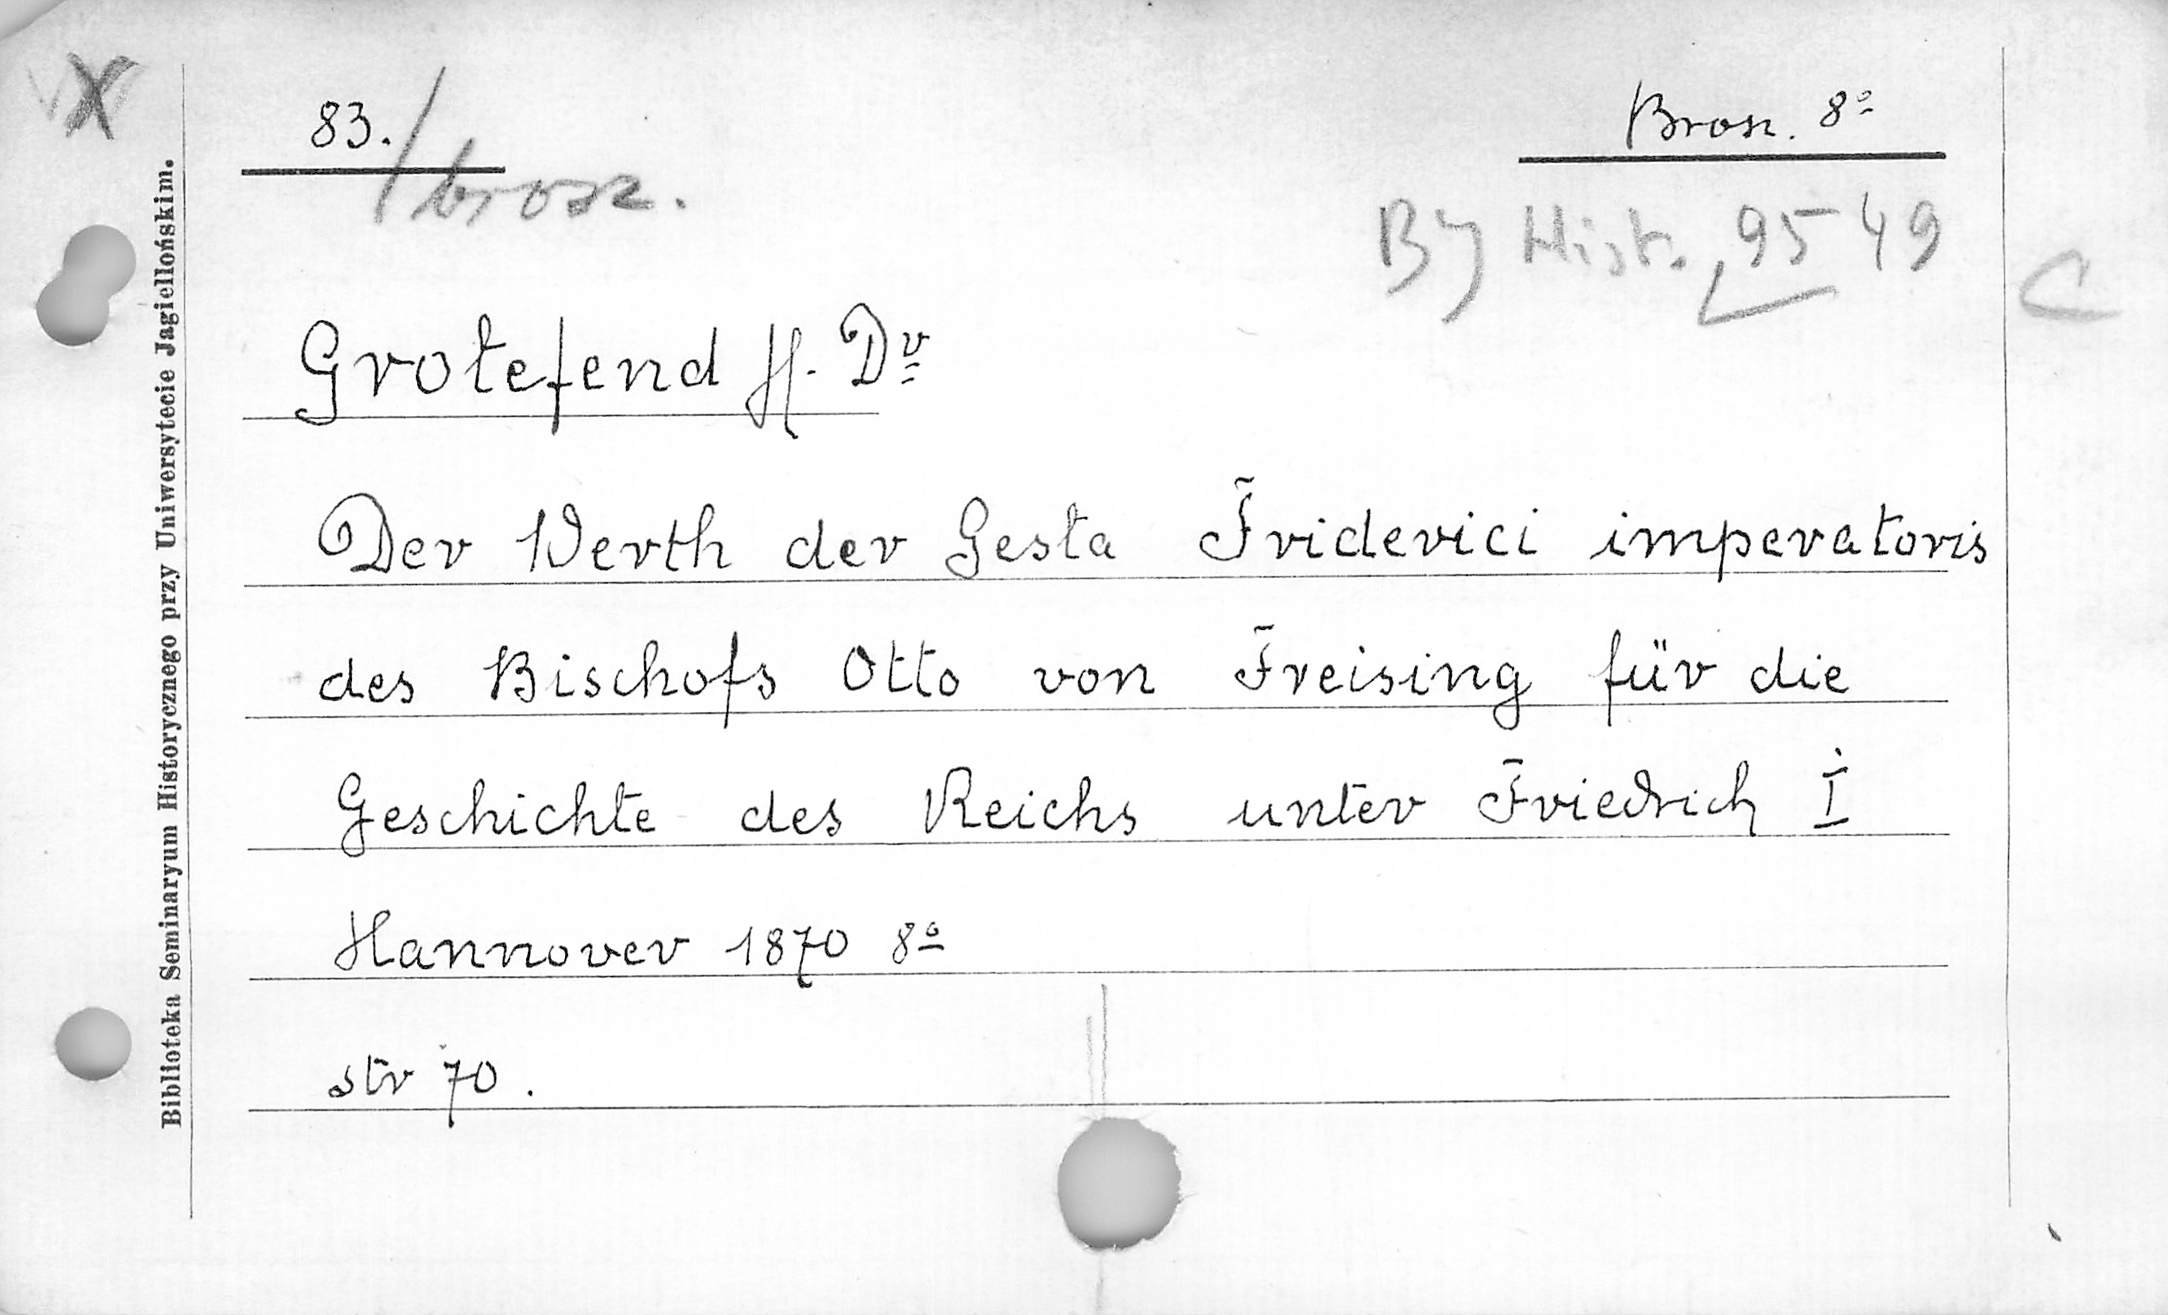 X
83. / brosz.
Brosz. 8º
BJ Hist. 95 49
C
Grotefend H. Dr
Der Werth der Gesta Friderici imperatoris
des Bischofs Otto von Freising für die
Geschichte des Reichs unter Friedrich I
Hannover 1870 8º
str 70.
Biblioteka Seminaryum Historycznego przy Uniwersytecie Jagiellońskim.